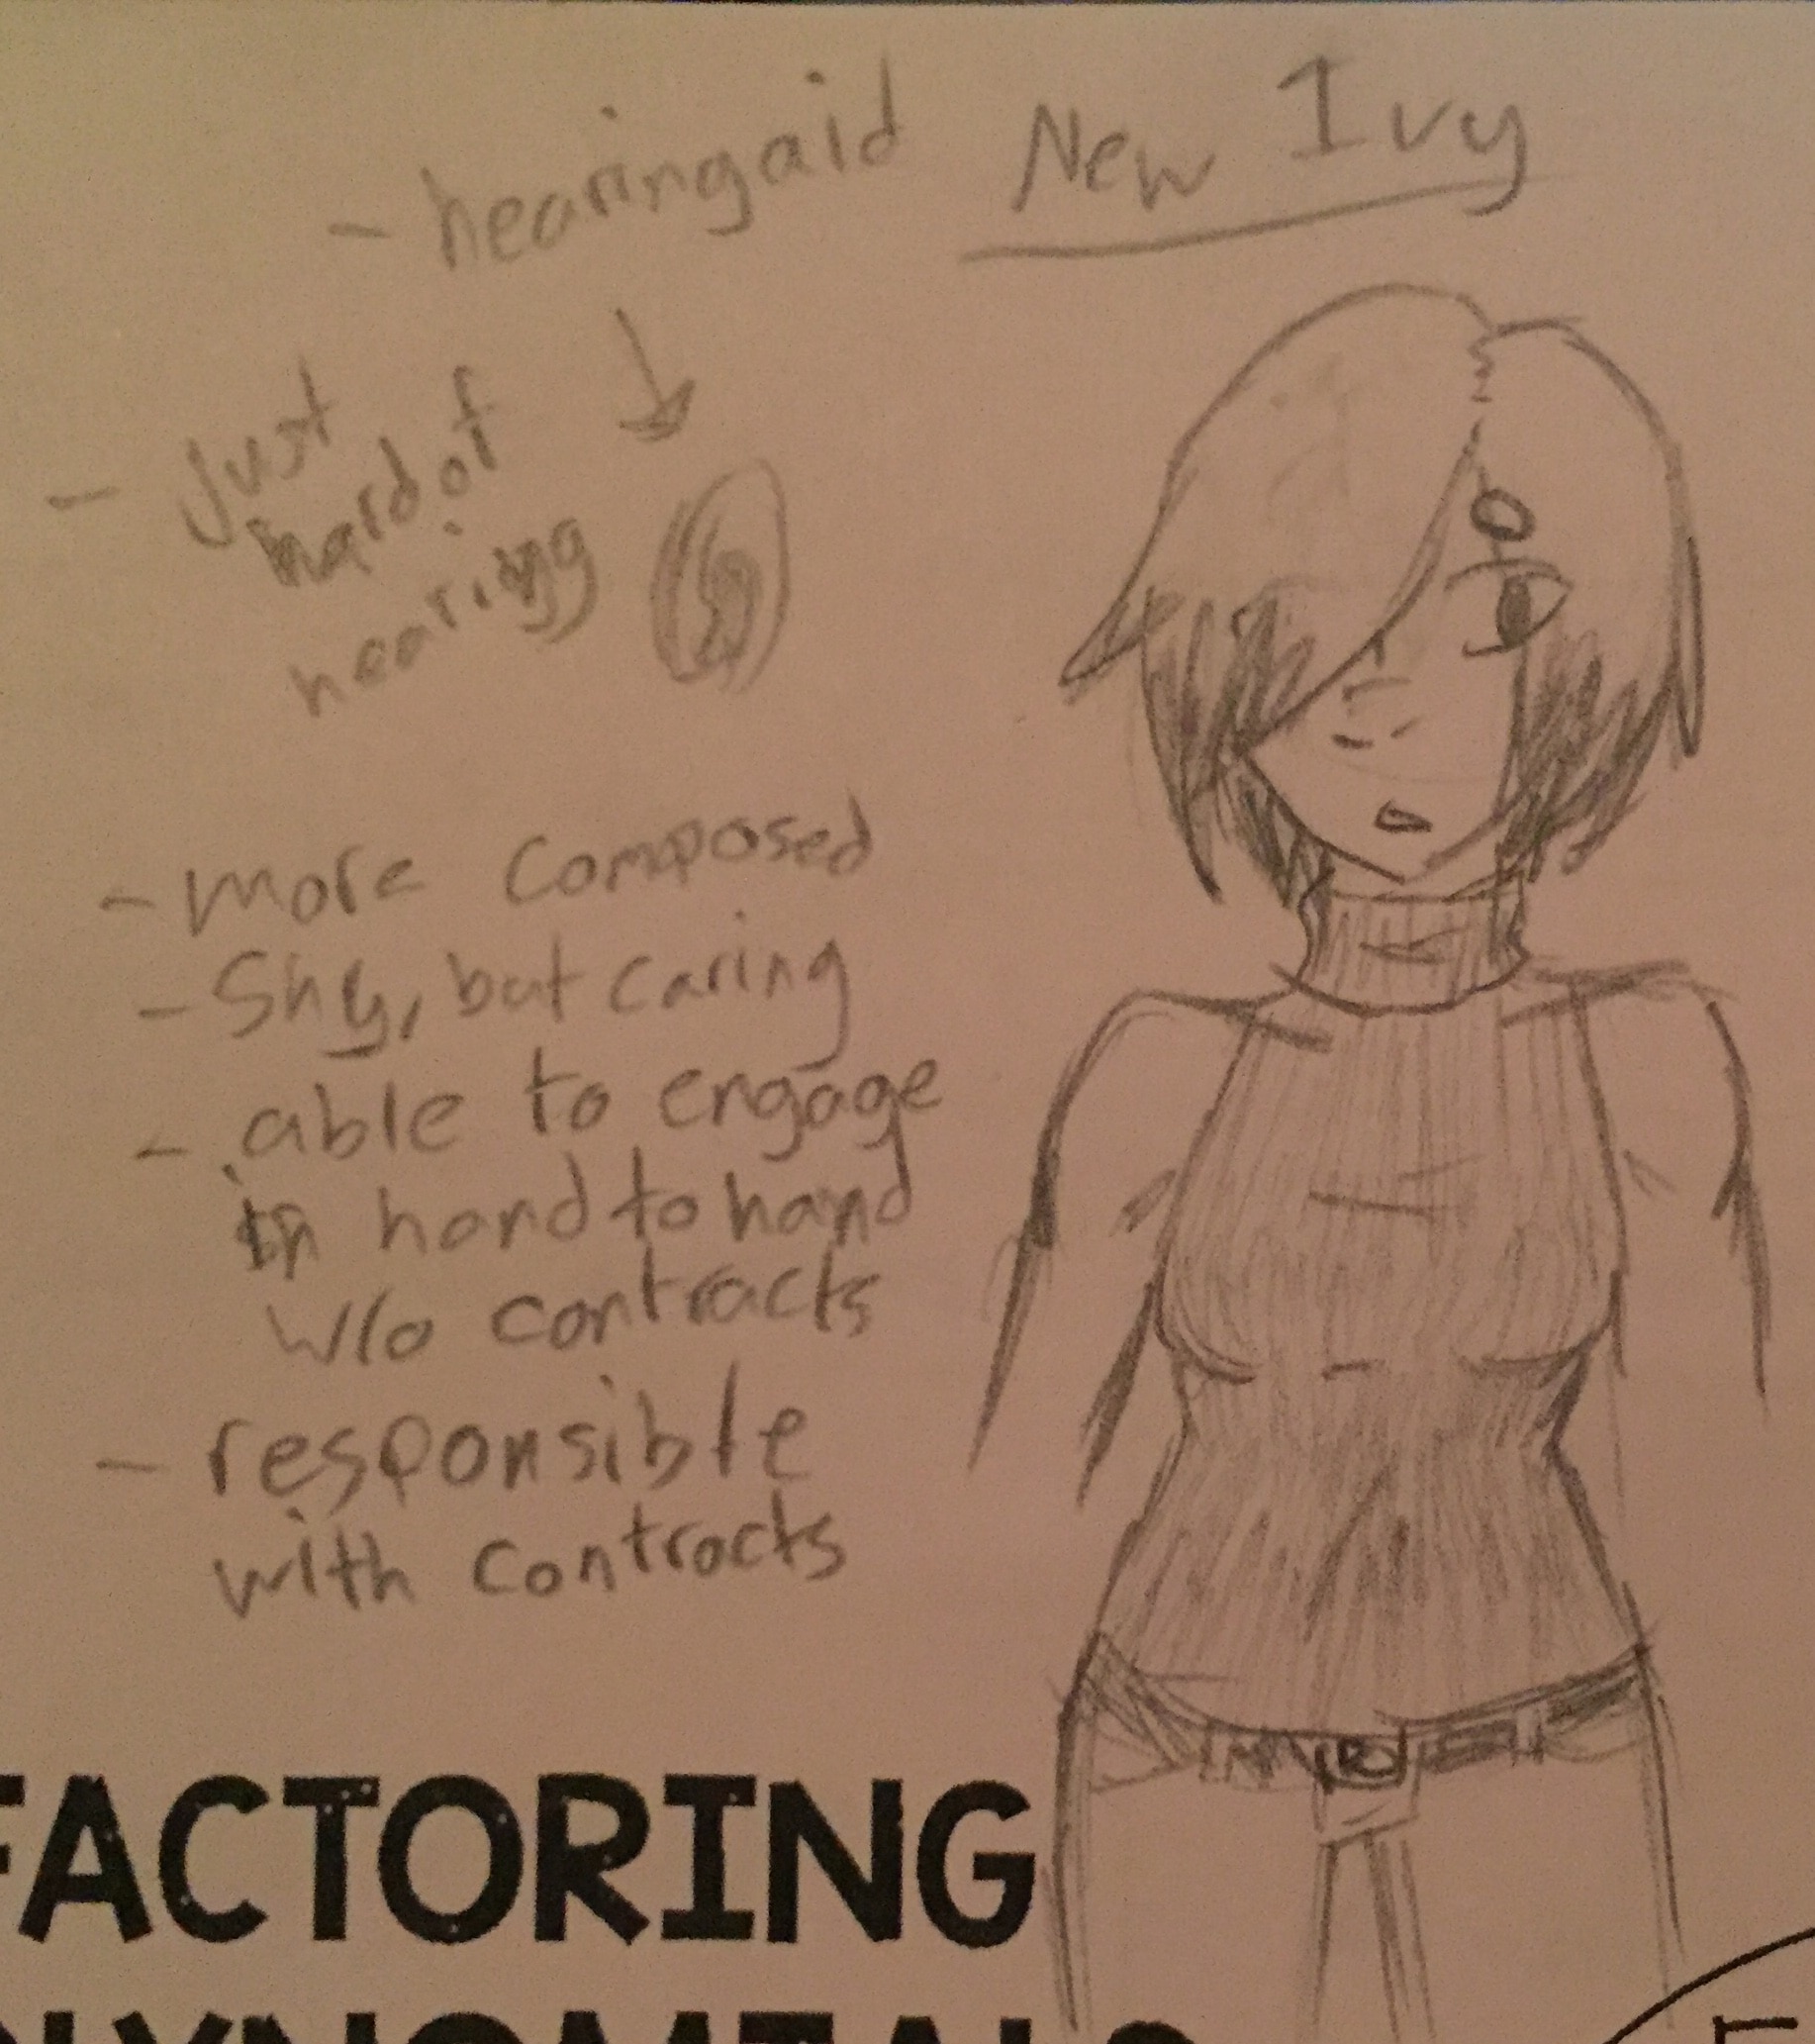 New Ivy
- hearing aid
- Just
hard of
hearing
- more composed
- Shy, but caring
- able to engage
in hand to hand
w/o contracts
- responsible
with contracts
FACTORING